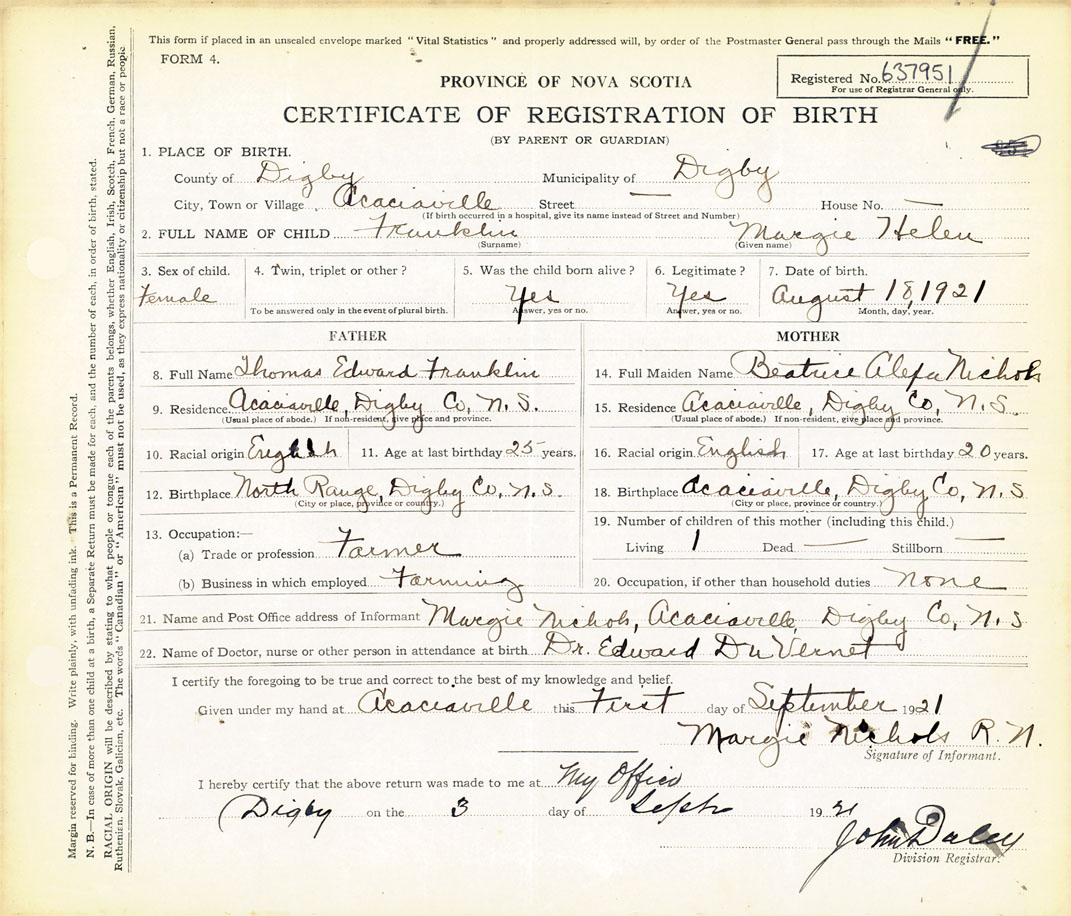 This form if placed in an unsealed envelope marked "Vital Statistics" and properly addressed will, by order of the Postmaster General pass through the Mails "FREE."
FORM 4.
Registered No. 637951
For use of Registrar General only.
PROVINCE OF NOVA SCOTIA
CERTIFICATE OF REGISTRATION OF BIRTH
(BY PARENT OR GUARDIAN)
1. PLACE OF BIRTH.
County of Digby Municipality of Digby
City, Town or Village Acaciaville Street — House No. —
(If birth occurred in a hospital, give its name instead of Street and Number)
2. FULL NAME OF CHILD Franklin Margie Helen
(Surname) (Given name)
3. Sex of child. 4. Twin, triplet or other? 5. Was the child born alive? 6. Legitimate? 7. Date of birth.
Female Yes Yes August 18, 1921
To be answered only in the event of plural birth. Answer, yes or no. Answer, yes or no. Month, day, year.
FATHER MOTHER
8. Full Name Thomas Edward Franklin 14. Full Maiden Name Beatrice Alefa Nichols
9. Residence Acaciaville, Digby Co, N.S. 15. Residence Acaciaville, Digby Co, N.S.
(Usual place of abode.) If non-resident, give place and province. (Usual place of abode.) If non-resident, give place and province.
10. Racial origin English 11. Age at last birthday 25 years. 16. Racial origin English 17. Age at last birthday 20 years.
12. Birthplace North Range, Digby Co, N.S. 18. Birthplace Acaciaville, Digby Co, N.S
(City or place, province or country.) (City or place, province or country.)
13. Occupation:— 19. Number of children of this mother (including this child.)
(a) Trade or profession Farmer Living 1 Dead — Stillborn —
(b) Business in which employed Farming 20. Occupation, if other than household duties None
21. Name and Post Office address of Informant Margie Nichols, Acaciaville, Digby Co, N.S
22. Name of Doctor, nurse or other person in attendance at birth Dr. Edward DuVernet
I certify the foregoing to be true and correct to the best of my knowledge and belief.
Given under my hand at Acaciaville this First day of September 1921
Margie Nichols R.N.
Signature of Informant.
I hereby certify that the above return was made to me at My Office
Digby on the 3 day of Sept 1921
John Daley
Division Registrar.
Margin reserved for binding. Write plainly, with unfading ink. This is a Permanent Record.
N. B.—In case of more than one child at a birth, a Separate Return must be made for each, and the number of each, in order of birth, stated.
RACIAL ORIGIN will be described by stating to what people or tongue each of the parents belongs, whether English, Irish, Scotch, French, German, Russian,
Ruthenian, Slovak, Galician, etc. The words "Canadian" or "American" must not be used, as they express nationality or citizenship but not a race or people